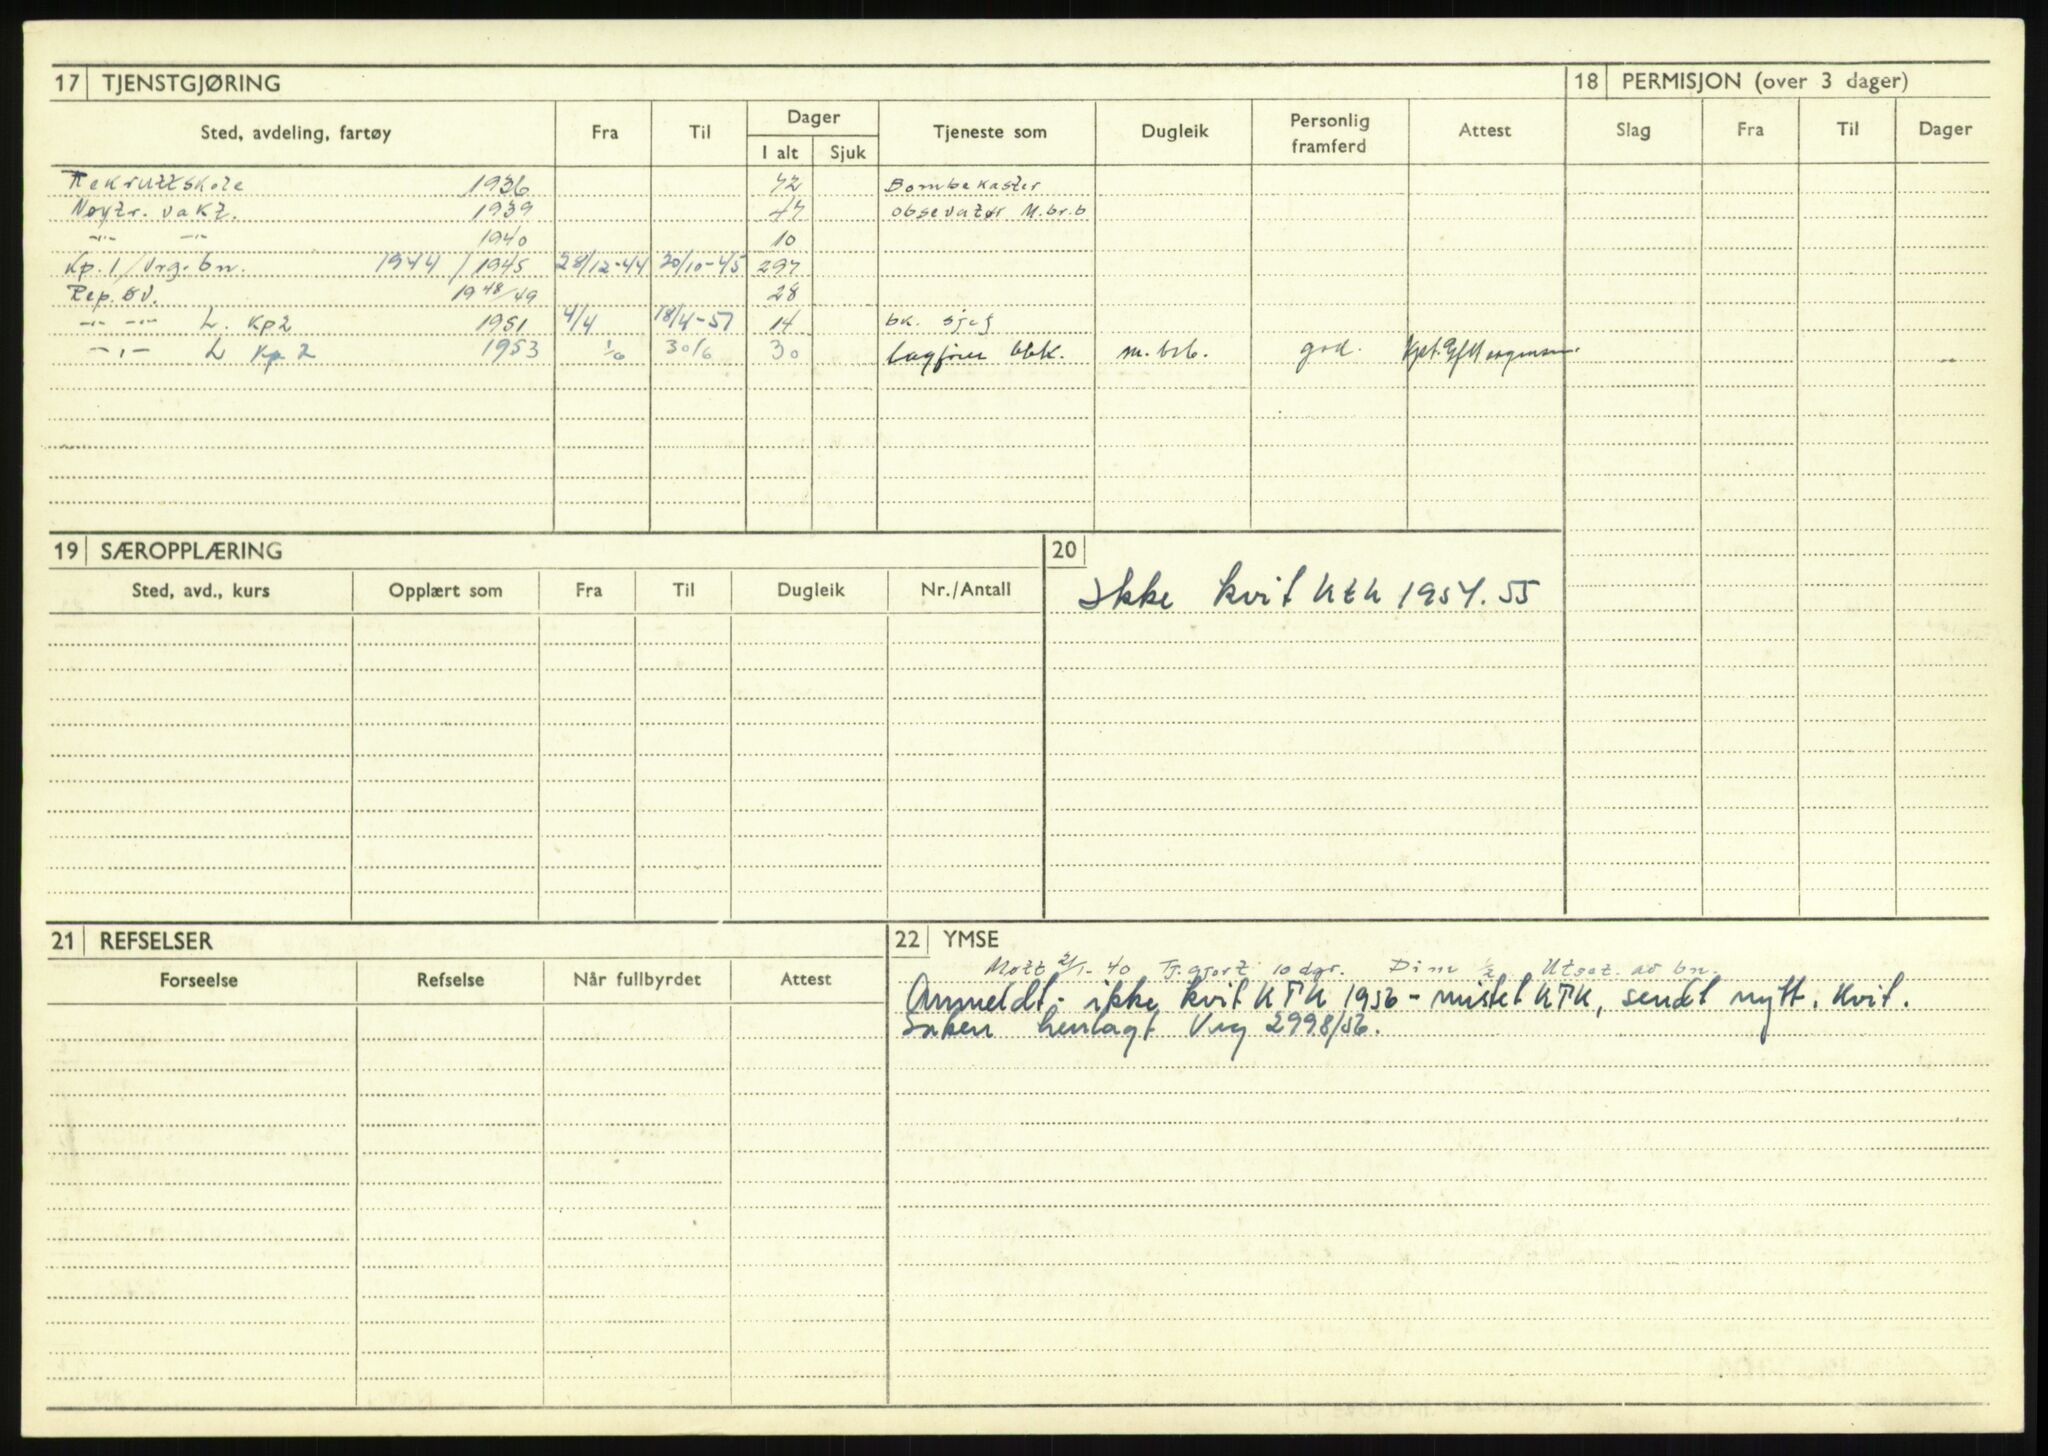 17 TJENSTGJØRING
18 PERMISJON (over 3 dager)
Sted, avdeling, fartøy Fra Til Dager Tjeneste som Dugleik Personlig framferd Attest Slag Fra Til Dager
I alt Sjuk
Rekruttskole 1936 72 Bombekaster
Nøytr. vakt. 1939 47 obsevatør M.br.b
-"- -"- 1940 10
Kp. 1/Vrg. bn. 1944/1945 28/12-44 20/10-45 297
Rep. øv. 1948/49 28
-"- -"- L. Kp2 1951 4/4 18/4-51 14 bk. sjef
-"- L Kp 2 1953 1/6 30/6 30 lagfører bbk. m. brb. god. Kpt.
19 SÆROPPLÆRING
20
Sted, avd., kurs Opplært som Fra Til Dugleik Nr./Antall
Ikke kvit KTK 1954. 55
21 REFSELSER
22 YMSE
Forseelse Refselse Når fullbyrdet Attest
Møtt 2/1-40 Tj.gjort 10 dgr. Dim 1/2 Utsat. av bn.
Anmeldt - ikke kvit KTK 1956 - mistet KTK, sendt nytt. Kvit.
Saken henlagt Vrg 2998/56.